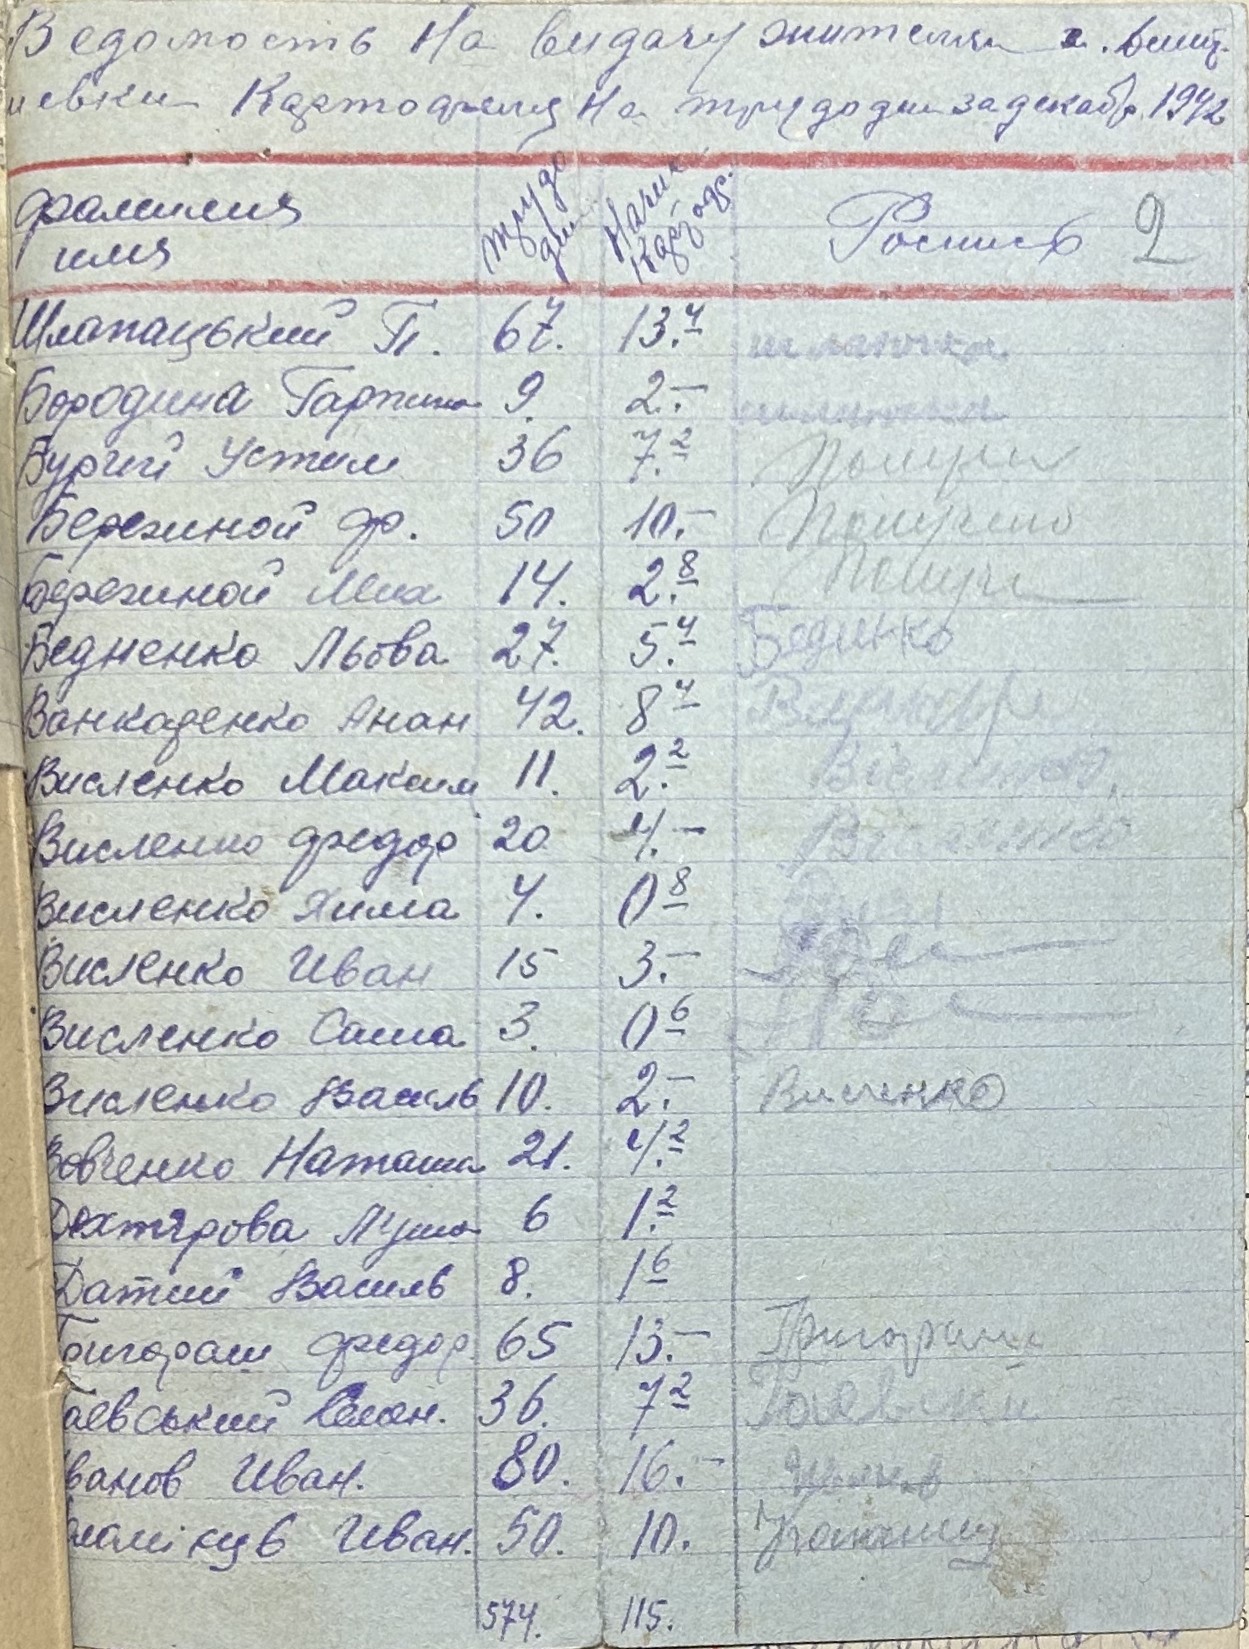 Ведомость На видачу жителям с.
евки Картофеля На трудодни за декабр. 1942
фамилия имя трудо дни Начис карт Роспись 2
Шлапацький П. 67. 13.4
Бородина Гарпина 9. 2.-
Бургий Устим 36 7.2 Получил
Бережной ф. 50 10.- Получено
Бережной Мих 14. 2.8 Получил
Бедненко Льова 27. 5.4 Бедненко
Ванкаденко Анан 42. 8 4
Висленко Максим 11. 2.2 Висленко
Висленко федор 20 4.- Висленко
Висленко Хима 4. 0 8
Висленко Иван 15 3.-
Висленко Саша 3. 0 6
Висленко Василь 10. 2.- Висленко
Вовченко Наташа 21. 4.2
Дехтярова Луша 6 1.2
Датий Василь 8. 1 6
Григораш федор 65 13.- Григораш
Гаевський Семен. 36. 7 2 Гаевский
Иванов Иван. 80. 16.- Иванов
Иван. 50. 10.
574. 115.